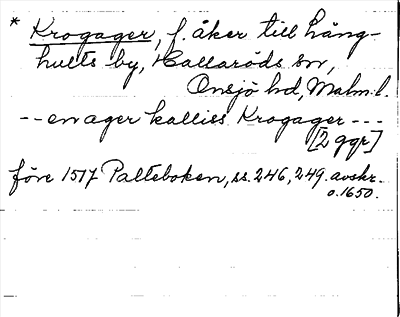 * Krogager, f. åker till Lång-
hults by, Hallaröds sn,
Onsjö hd, Malm. l.
-- en ager kalliss Krogager ---
[2 ggr]
före 1517 Palteboken, ss. 246, 249. avskr.
o. 1650.